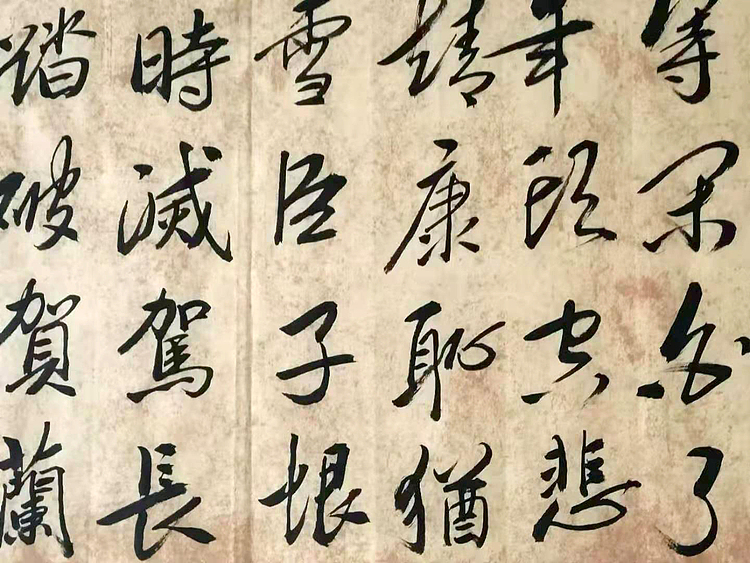 等閑白了
年頭空悲
靖康恥猶
雪臣子恨
時滅駕長
踏破賀蘭